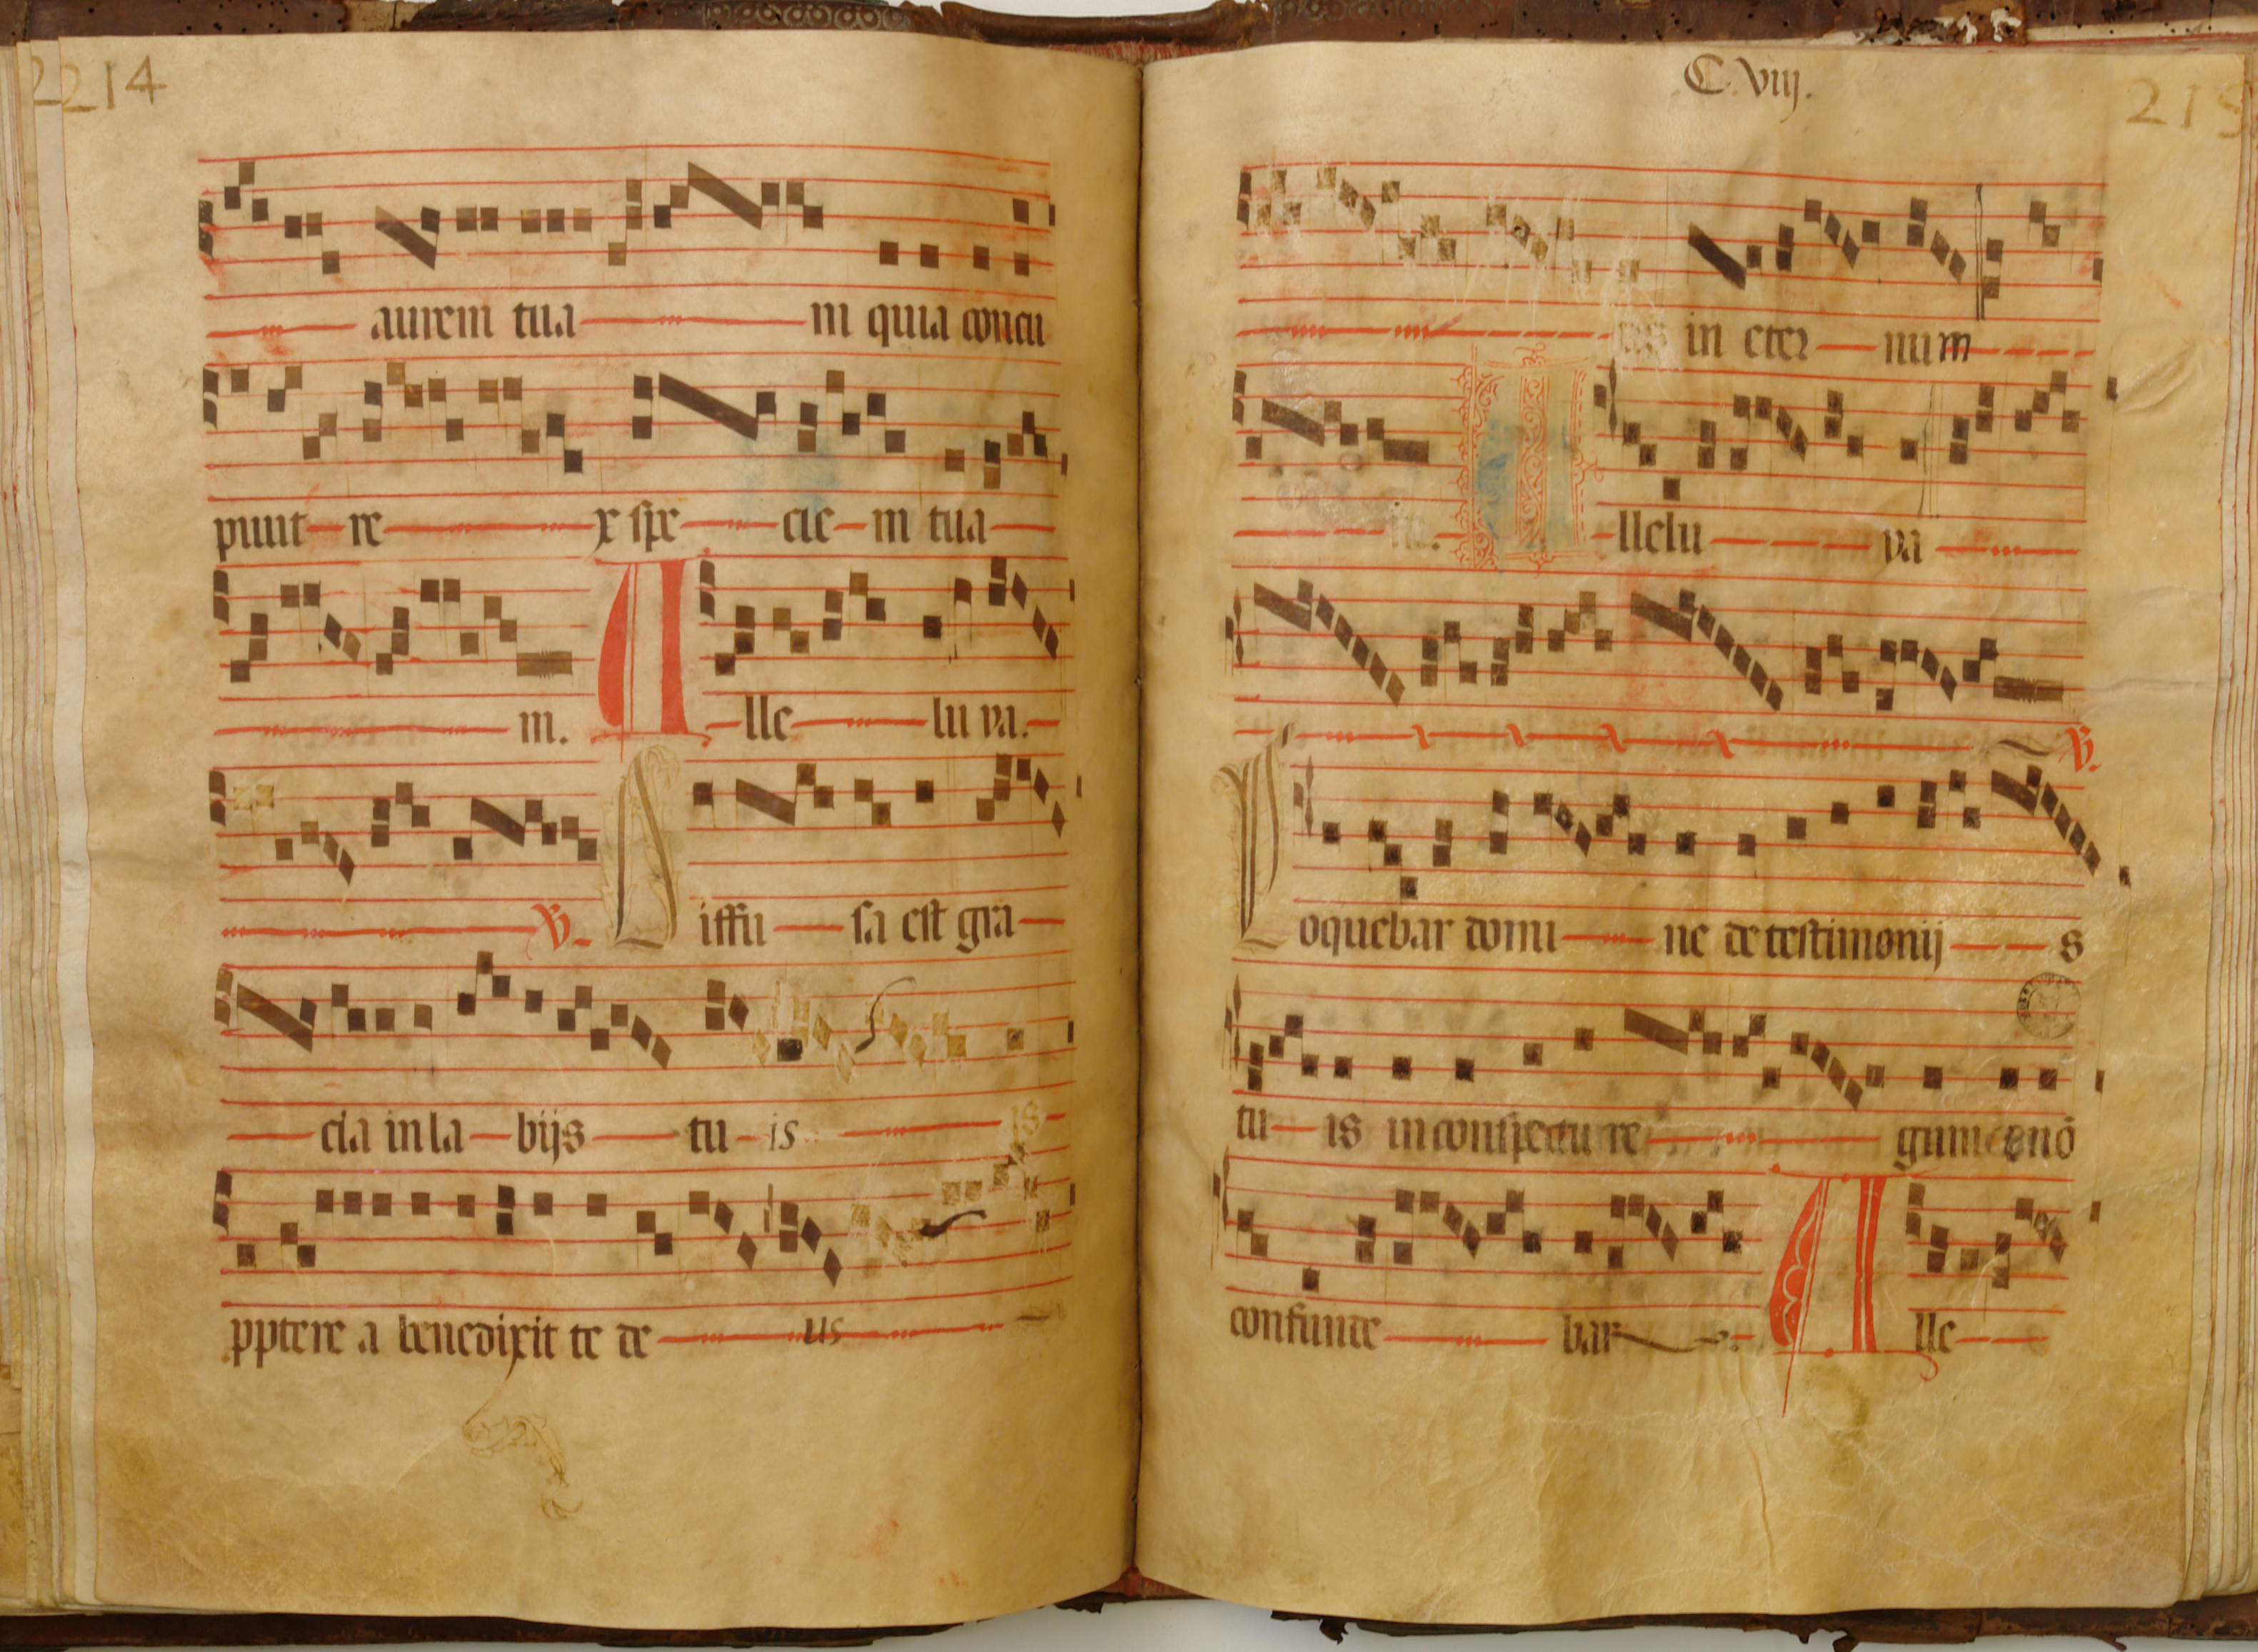 2214
aurem tua m quia concu
piuit re x spe cie m tua
m. A lle lu ya.
V. D iffu sa est gra
cia in la bijs tu is is
pptere a benedixit te de us
C. viij.
215
in eter num
A llelu ya
V.
L oquebar domi ne de testimonij s
tu is in conspectu re gum & nō
confunde bar A lle